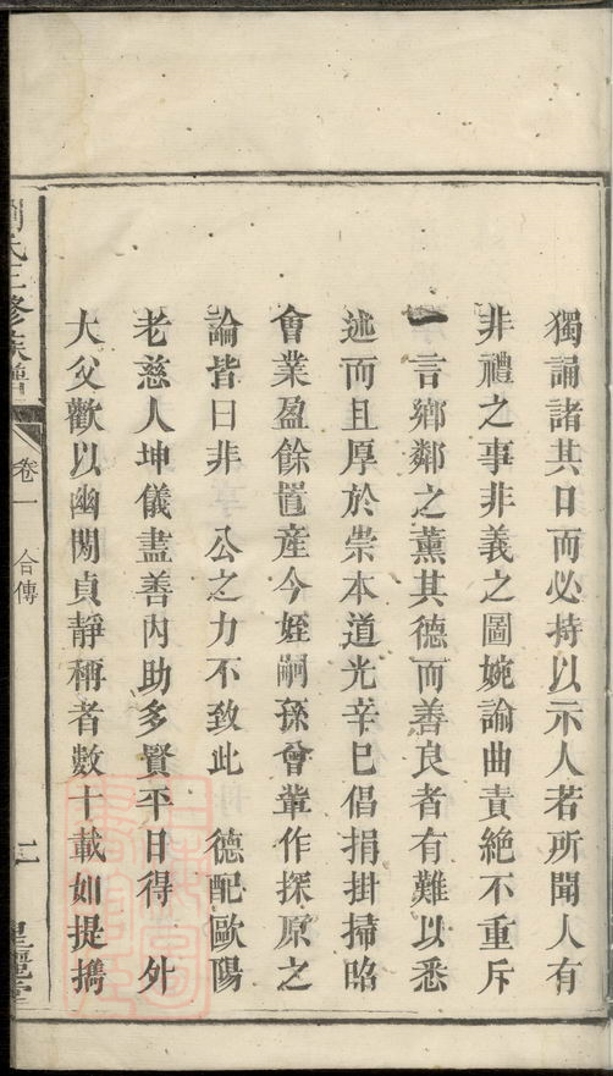 獨誦諸其口而必持以示人若所聞人有
非禮之事非義之圖婉諭曲責絶不重斥
一言鄉鄰之薰其德而善良者有難以悉
述而且厚於崇本道光辛巳倡捐掛掃昭
會業盈餘置產今姪嗣孫曾輩作探原之
論皆曰非　公之力不致此　德配歐陽
老慈人坤儀盡善内助多賢平日得　外
大父歡以幽閑貞靜稱者數十載如提擕
劉氏三修族譜
卷一
合傳
二